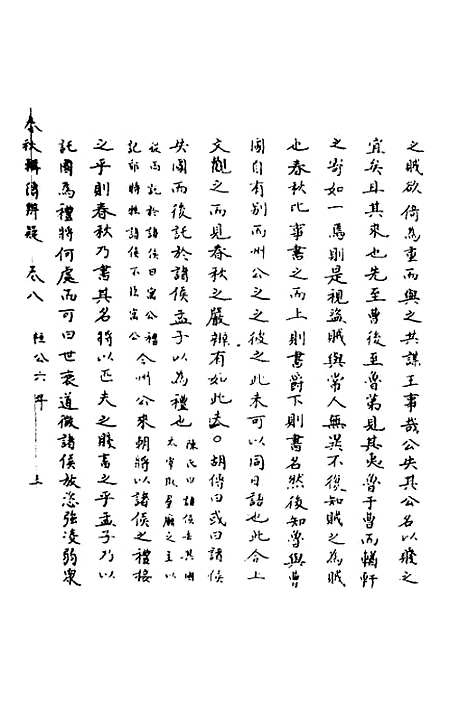 之賊欲倚為重而與之共謀王事哉公失其公名以廢之
宜矣且其來也先至曹後至魯第見其夷魯于曹而稱軒
之寄如一焉則是視盜賊與常人無異不復知賊之為賊
也春秋比事書之而上則書爵下則書名然後知魯與曹
國自有別而州公之之彼之此未可以同日語也此合上
文觀之而見春秋之嚴辨有如此夫○胡傳曰或曰諸侯
失國而後託於諸侯孟子以為禮也陳氏曰諸侯去其國
大宰取羣廄之主以
從而託於諸侯曰寓公禮
記郊特牲諸侯不臣寓公今州公來朝將以諸侯之禮接
之乎則春秋乃書其名將以匹夫之賤畜之乎孟子乃以
託國為禮將何處而可曰世衰道微諸侯放恣強凌弱眾
春秋辨傳辨疑 卷八 桓公六年 上